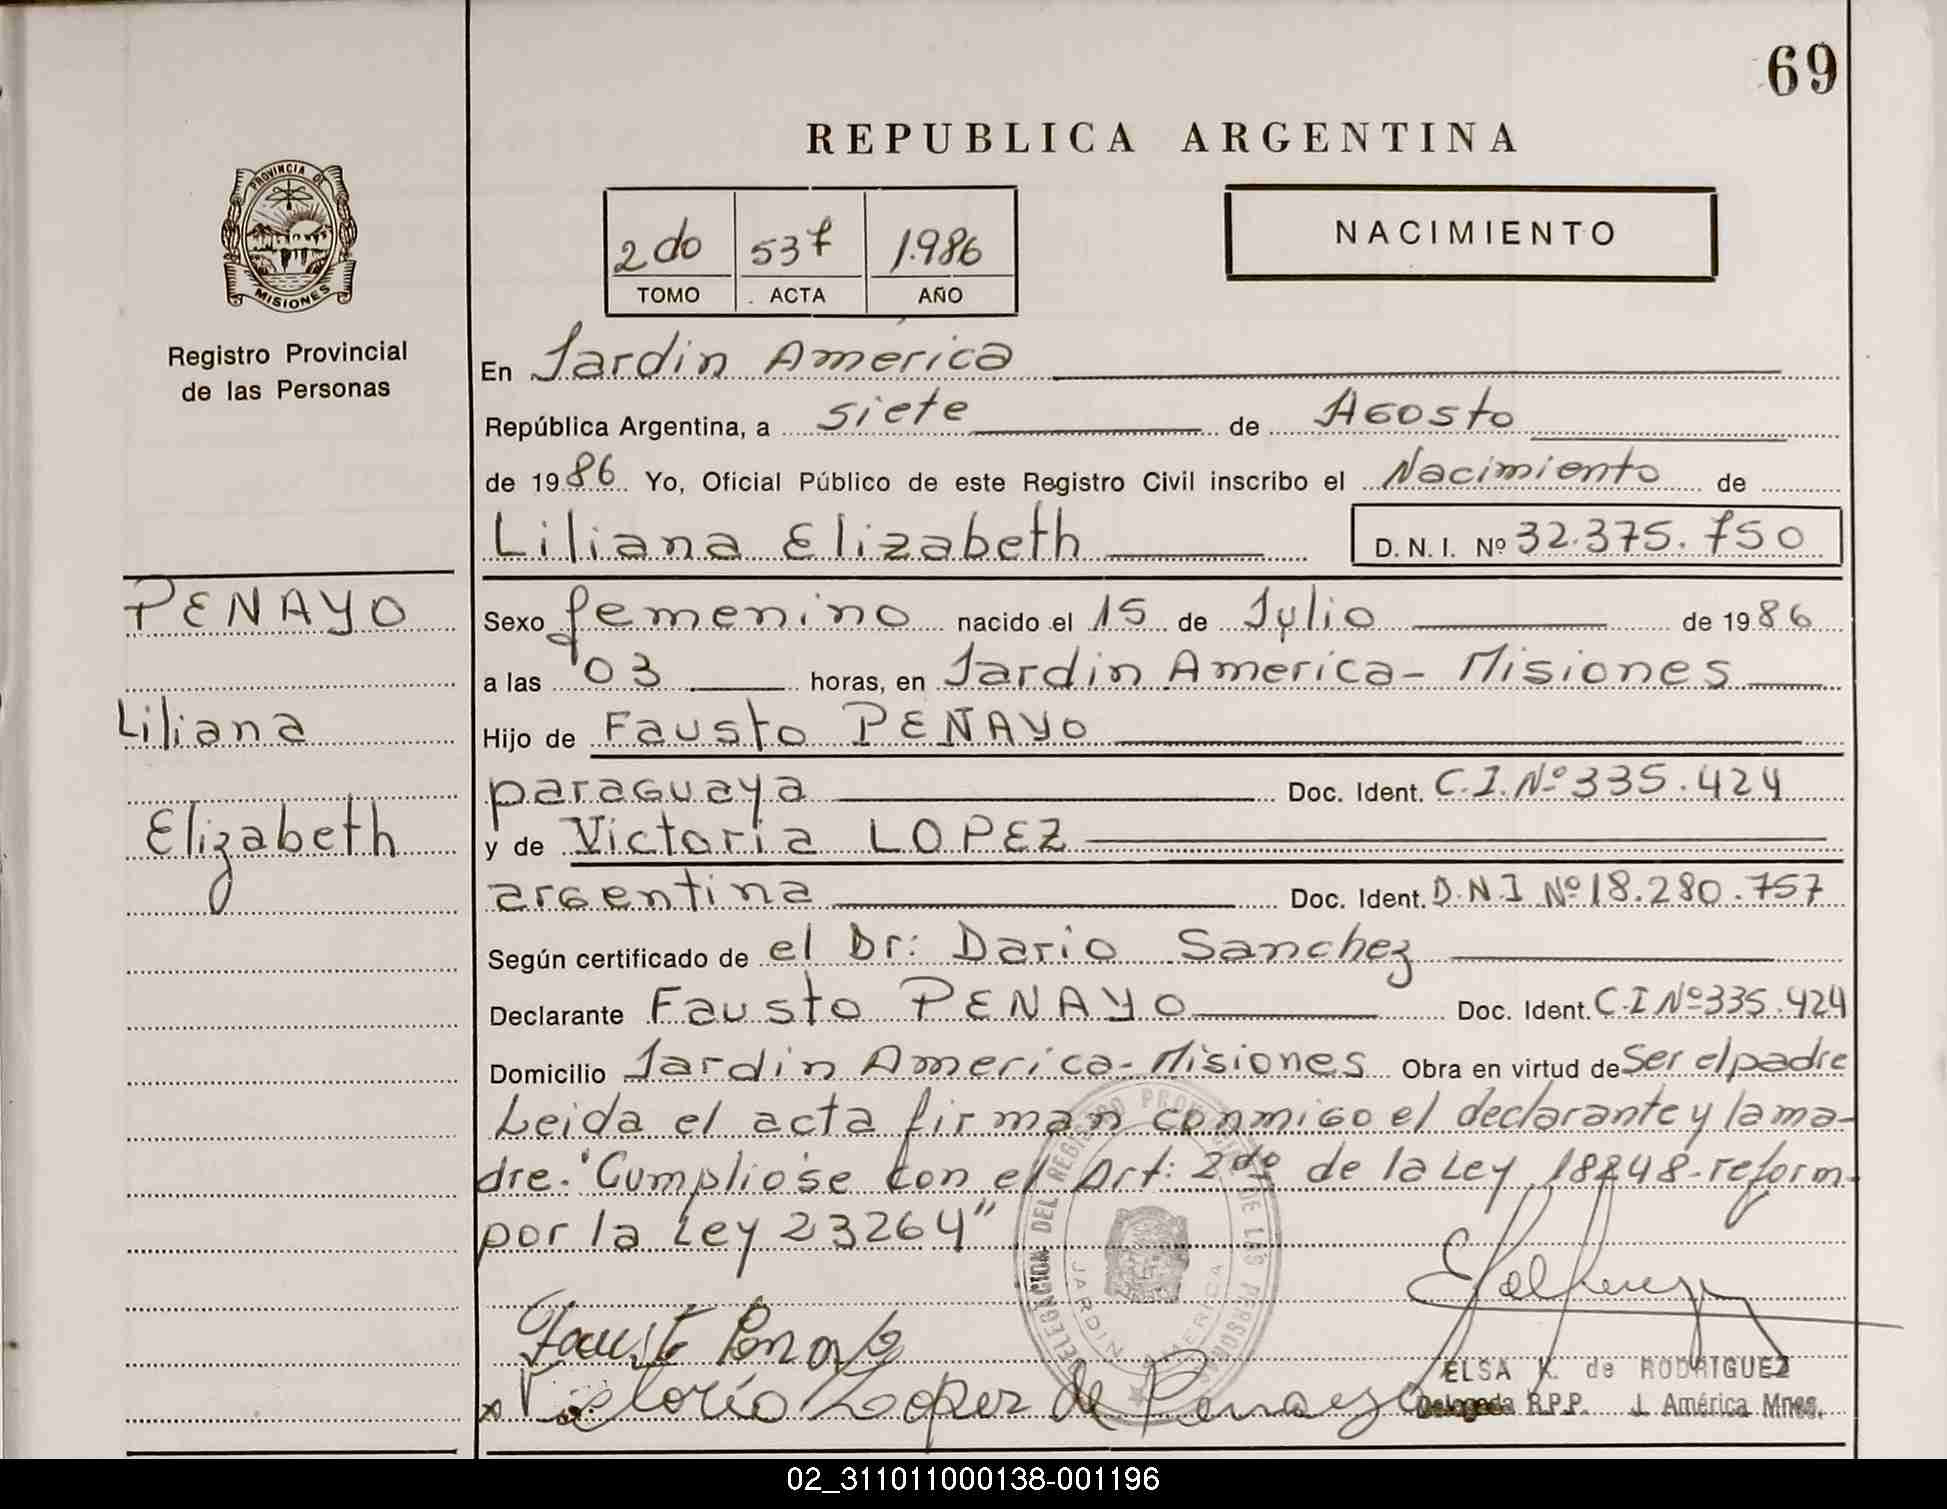 69
REPUBLICA ARGENTINA
PROVINCIA DE
MISIONES
Registro Provincial
de las Personas
2do 537 1.986
TOMO ACTA AÑO
NACIMIENTO
En Jardin America
República Argentina, a siete de Agosto
de 1986 Yo, Oficial Público de este Registro Civil inscribo el Nacimiento de
Liliana Elizabeth D.N.I. Nº 32.375.750
PENAYO
Liliana
Elizabeth
Sexo femenino nacido el 15 de Julio de 1986
a las 03 horas, en Jardin America - Misiones
Hijo de Fausto PENAYO
paraguaya Doc. Ident. C.I. Nº 335.424
y de Victoria LOPEZ
argentina Doc. Ident. D.N.I Nº 18.280.757
Según certificado de el Dr: Dario Sanchez
Declarante Fausto PENAYO Doc. Ident. C.I Nº 335.424
Domicilio Jardin America - Misiones Obra en virtud de Ser el padre
Leida el acta firman conmigo el declarante y la ma-
dre. "Cumpliose con el Art: 2do de la Ley 18248 - reform.
por la Ley 23264"
DELEGACION DEL REGISTRO PROVINCIAL DE LAS PERSONAS
JARDIN AMERICA
Fausto Penayo
x Victoria Lopez de Penayo
ELSA K. de RODRIGUEZ
Delegada R.P.P. J. América Mnes.
02_311011000138-001196